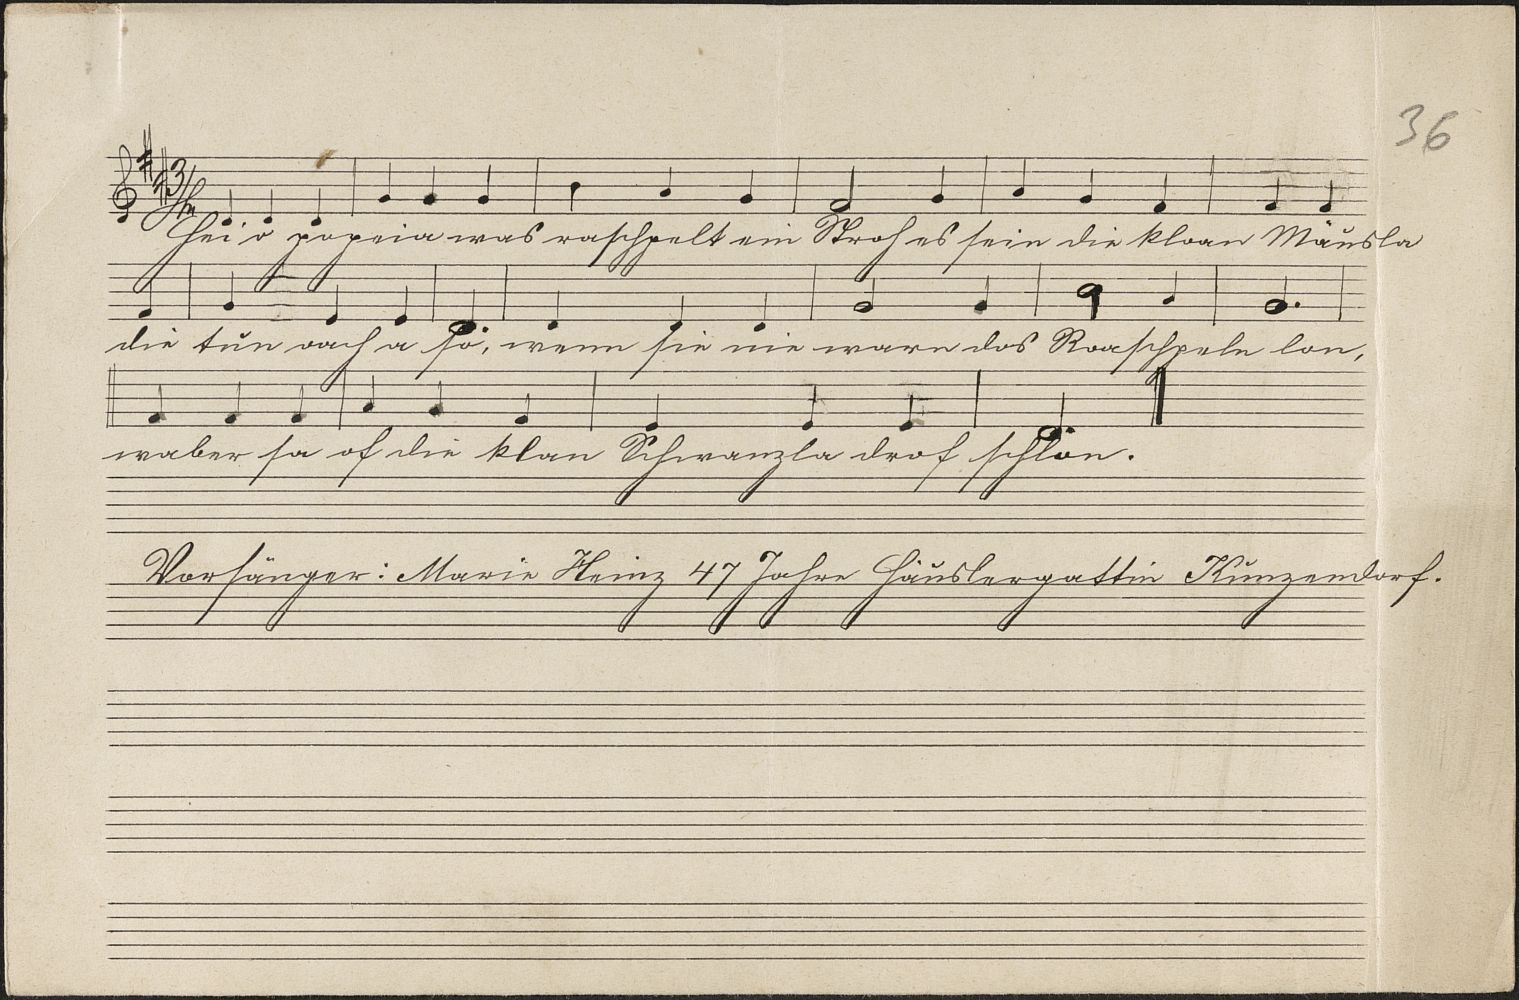 36
3/4
Hei o popeia was raschpelt ein Stroh es sein die kloan Mäusla
die tun oach a so, wenn sie nie warn dos Roaschpeln lon,
waber sa of die klan Schwanzla drof schlon.
Vorsänger: Marie Heinz 47 Jahre Häuslergattin Kunzendorf.